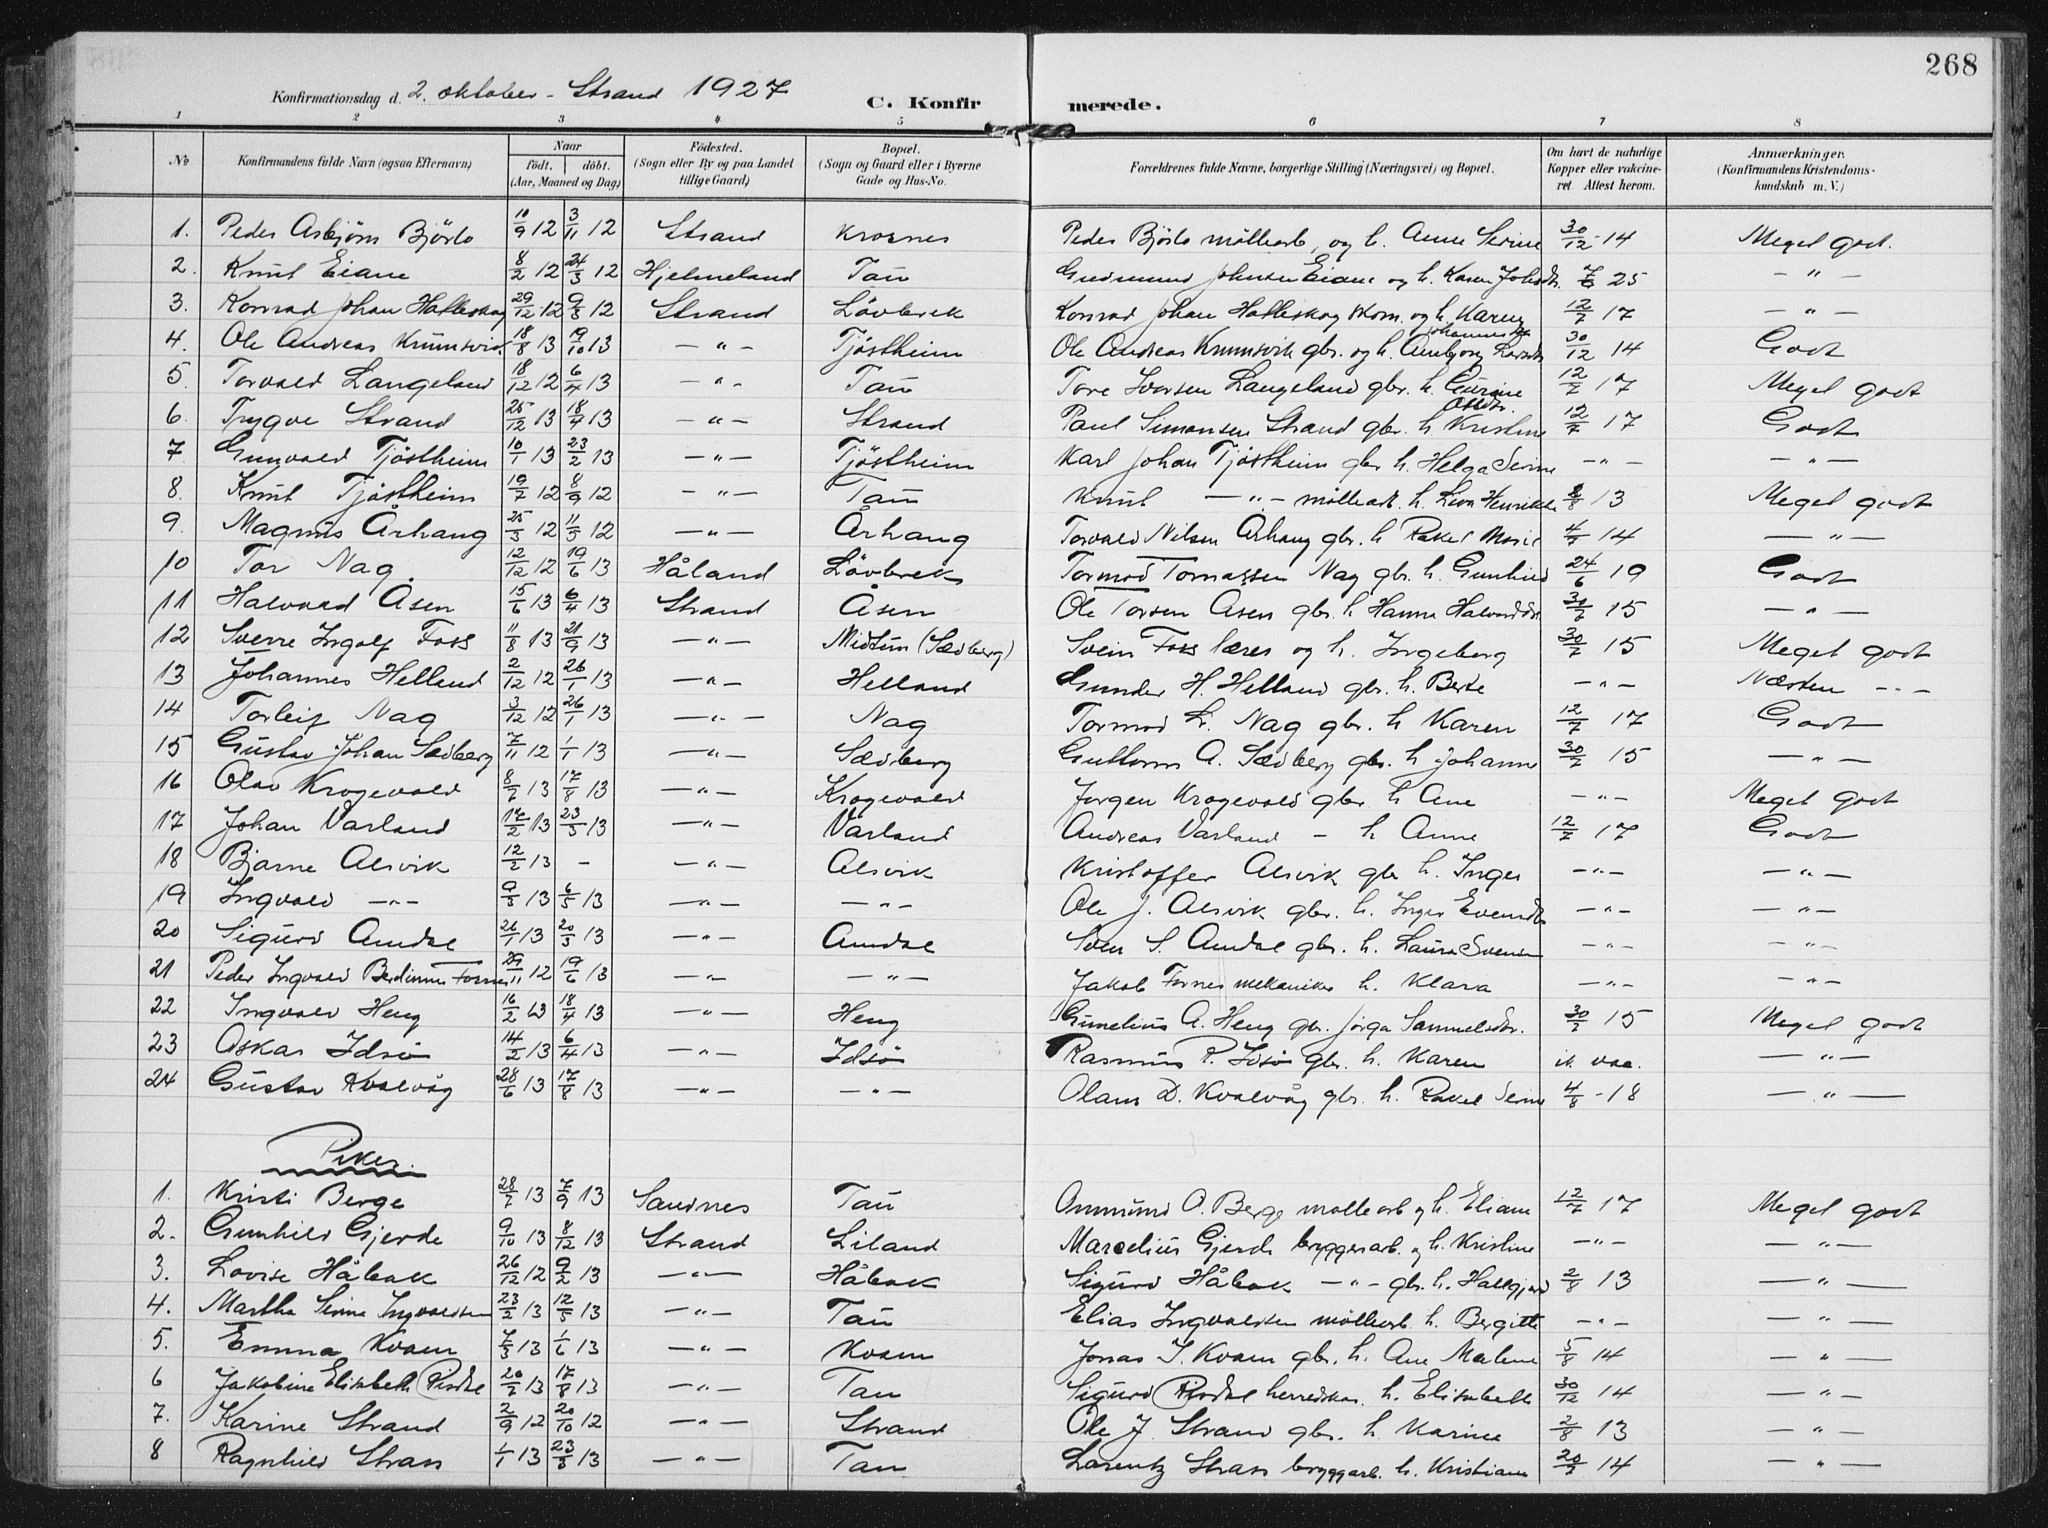 268
Konfirmationsdag d. 2. oktober - Strand 1927 C. Konfirmerede.
1 2 3 4 5 6 7 8
No Konfirmandens fulde Navn (ogsaa Efternavn) Naar født. døbt. (Aar, Maaned og Dag) Fødested. (Sogn eller By og paa Landet tillige Gaard) Bopæl. (Sogn og Gaard eller i Byerne Gade og Hus-No. Forældrenes fulde Navne, borgerlige Stilling (Næringsvei) og Bopæl. Om havt de naturlige Kopper eller vakcineret Attest herom. Anmærkninger. (Konfirmandens Kristendomskundskab m. V.)
1. Peder Asbjørn Bjørlo 10/9 12 3/11 12 Strand Krosnes Peder Bjørlo møllearb. og h. Anne Serine 30/12 - 14 Meget godt.
2. Knut Eiane 8/2 12 24/3 12 Hjelmeland Tau Gudmund Johnsen Eiane og h. Karen 25 - " -
3. Konrad Johan Hatleskog 29/12 12 9/8 12 Strand Løvbrek Konrad Johan Hatleskog skom. og h. Karen 12/7 17 - " -
4. Ole Andreas Krumsvik 18/8 13 19/10 13 - " - Tjøstheim Ole Andreas Krumsvik gbr. og h. 30/12 14 Godt
5. Torvald Langeland 18/12 12 6/4 13 - " - Tau Tore Iversen Langeland gbr. h. Gurine 12/7 17 Meget godt
6. Trygve Strand 25/12 13 18/4 13 - " - Strand Paul Simonsen Strand gbr. h. Kristine 12/7 17 Godt
7. Gunvald Tjøstheim 10/1 13 23/2 13 - " - Tjøstheim Karl Johan Tjøstheim gbr h. Helga Serine - " - - " -
8. Knut Tjøstheim 19/7 12 8/9 12 - " - Tau Knut - " - møllearb. h. 13 Meget godt
9. Magnus Århang 25/3 12 11/5 12 - " - Århang Torvald Nilsen Århang gbr. h Rakel Marie 14 - " -
10 Tor Nag. 12/12 12 19/6 13 Håland Løvbrek Tormod Nag gbr. h. Gunhild 24/6 19 Godt
11 Halvard Åsen 15/6 13 6/4 13 Strand Åsen Ole Torsen Åsen gbr. h Hanna 15 - " -
12 Sverre Ingolf Foss 11/8 13 21/9 13 - " - Midtun (Sædberg) Svein Foss lærer og h. Ingeborg 30/7 15 Meget godt
13 Johannes Helland 2/12 12 26/1 13 - " - Helland Gunder H. Helland gbr. h. Berte - " - Næsten - " -
14 Torleif Nag 3/12 12 26/1 13 - " - Nag Tormod L. Nag gbr. h Karen 12/7 17 Godt
15 Gustav Johan Sædberg 7/11 12 1/1 13 - " - Sædberg Guttorm A. Sædberg gbr. h Johanne 30/7 15 - " -
16 Olav Krogevold 8/7 13 17/8 13 - " - Krogevold Jørgen Krogevold gbr. h Ane - " - Meget godt
17 Johan Varland 13 23/3 13 - " - Varland Andreas Varland - h Anne 12/7 17 Godt
18 Bjarne Alsvik 12/2 13 - - " - Alsvik Kristoffer Alsvik gbr h. Inger - " - - " -
19 Ingvald - " - 9/3 13 6/5 13 - " - - " - Ole J. Alsvik gbr. h. Inger - " - - " -
20 Sigurd Amdal 26/1 13 20/3 13 - " - Amdal Sven S. Amdal gbr. h. Laura - " - - " -
21 Peder Ingvald Berdinus Fornes 29/11 12 19/6 13 - " - - " - Jakob Fornes mekaniker h. Klara - " - - " -
22 Ingvald Heng 16/2 13 18/4 13 - " - Heng Gunelius A. Heng gbr. Jørga Samuelsdtr. 30/7 15 Meget godt
23 Oskar Idsø 14/2 13 6/4 13 - " - Idsø Rasmus R. Idsø gbr. h. Karen ik. vac. - " -
24 Gustav Kvalvåg 28/6 13 17/8 13 - " - - " - Olaus D. Kvalvåg gbr. h. Rakel Serine 4/8 - 18 - " -
Piker.
1. Kristi Berge 28/7 13 7/9 13 Sandnes Tau Ommund O. Berge møllearb og h. Eliane 12/7 17 Meget godt
2. Gunhild Gjerde 9/10 13 8/12 13 Strand Liland Marselius Gjerde bryggeriarb. og h. Kristine - " - - " -
3. Lovise Håbak 26/12 12 9/2 13 - " - Håbak Sigurd Håbak - " - gbr. h. Hallgjerd 2/8 13 - " -
4. Martha Serine Ingvaldsen 23/2 13 12/5 13 - " - Tau Elias Ingvaldsen møllearb. h. Bergitte - " - - " -
5. Emma Kvam 7/3 13 1/6 13 - " - Kvam Jonas I. Kvam gbr. h. Ane Malene 5/8 14 - " -
6 Jakobine Elisabeth Risdal 20/7 13 17/8 13 - " - Tau Sigurd Risdal herredskas. h. Elisabeth 30/12 14 - " -
7. Karine Strand 2/9 12 20/10 12 - " - Strand Ole J. Strand gbr. h Karine 2/8 13 - " -
8 Ragnhild Strass 1/1 13 23/3 13 - " - Tau Lorentz Strass bryggarb. h. Kristiane 20/7 14 - " -